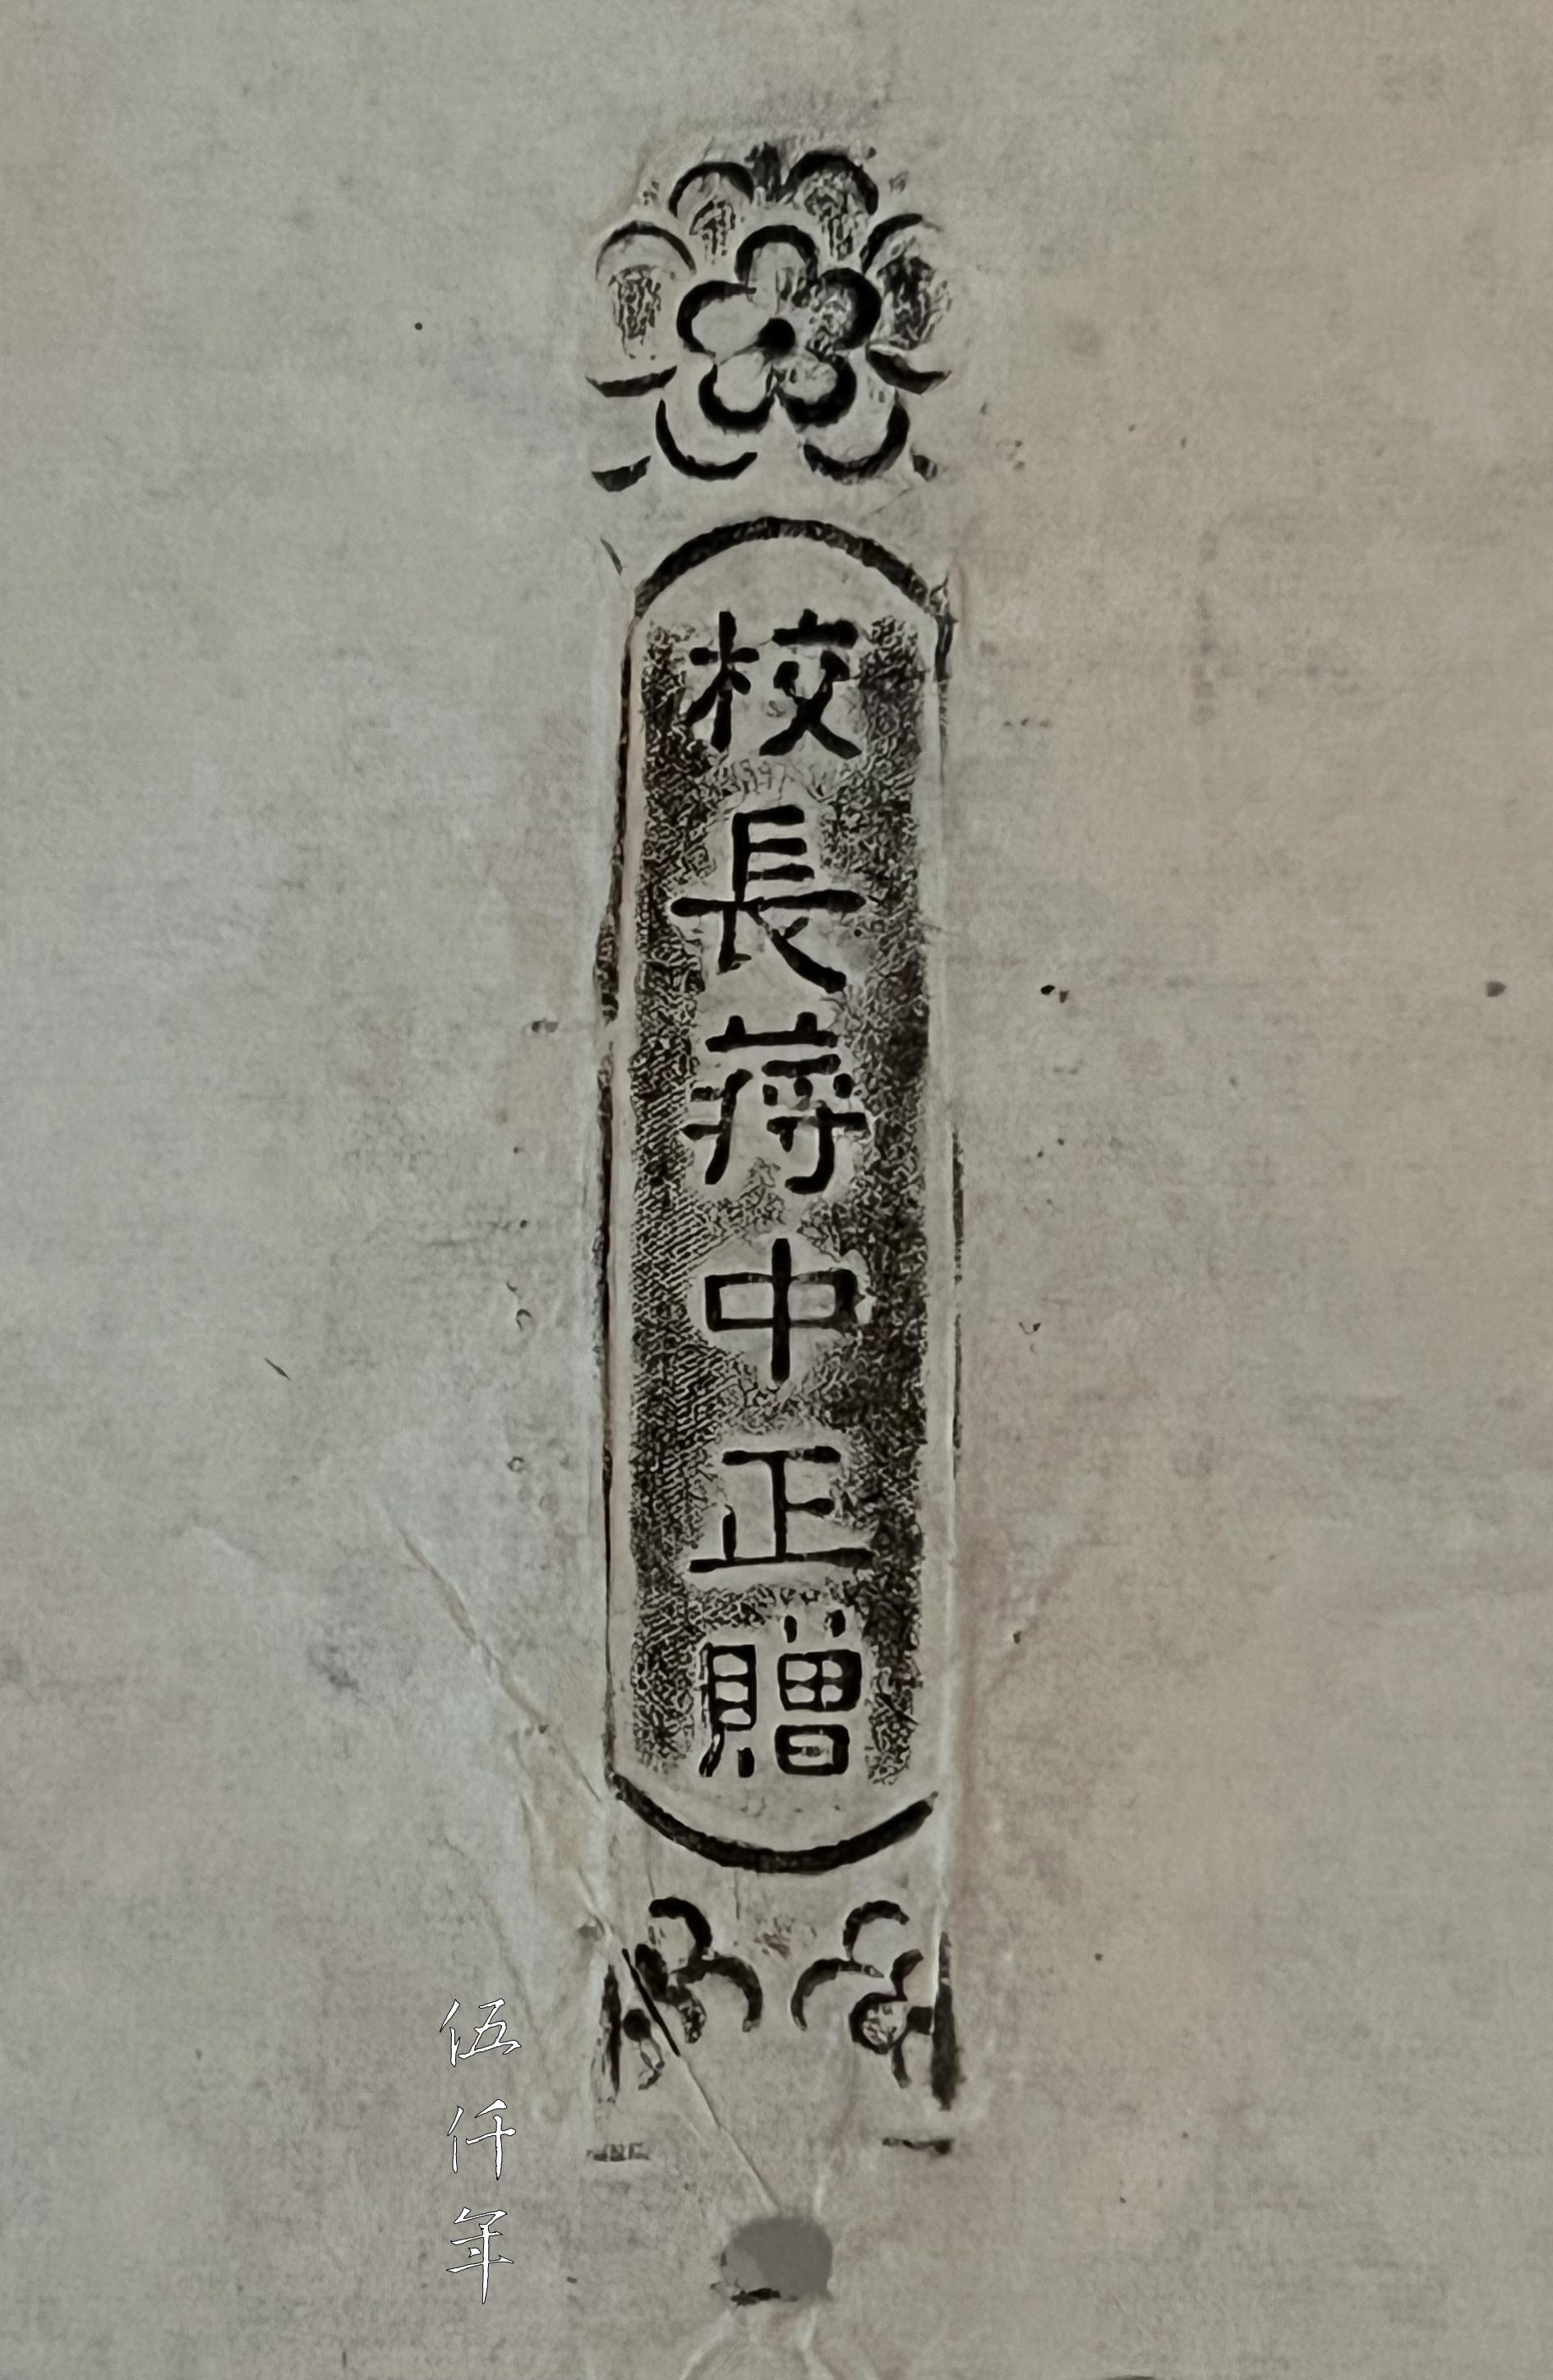 校長蔣中正贈
伍仟年